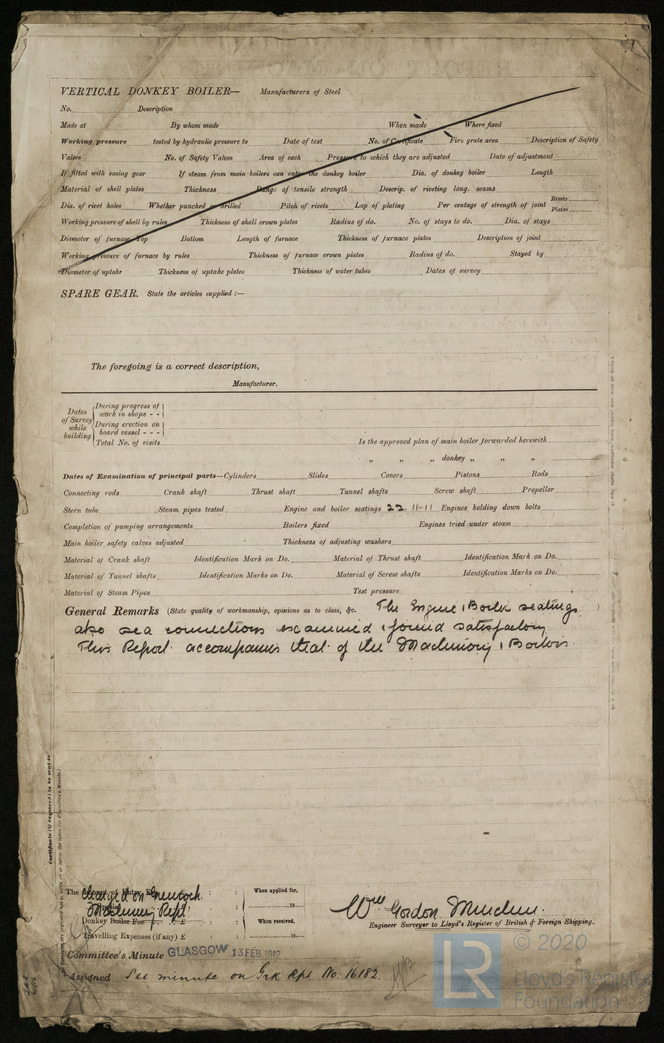 VERTICAL DONKEY BOILER— Manufacturers of Steel
No. Description
Made at By whom made When made Where fixed
Working pressure tested by hydraulic pressure to Date of test No. of Certificate Fire grate area Description of Safety
Valves No. of Safety Valves Area of each Pressure to which they are adjusted Date of adjustment
If fitted with easing gear If steam from main boilers can enter the donkey boiler Dia. of donkey boiler Length
Material of shell plates Thickness Range of tensile strength Descrip. of riveting long. seams
Dia. of rivet holes Whether punched or drilled Pitch of rivets Lap of plating Per centage of strength of joint Rivets Plates
Working pressure of shell by rules Thickness of shell crown plates Radius of do. No. of stays to do. Dia. of stays
Diameter of furnace Top Bottom Length of furnace Thickness of furnace plates Description of joint
Working pressure of furnace by rules Thickness of furnace crown plates Radius of do. Stayed by
Diameter of uptake Thickness of uptake plates Thickness of water tubes Dates of survey
SPARE GEAR. State the articles supplied :—
The foregoing is a correct description,
Manufacturer.
Dates of Survey while building
During progress of work in shops - -
During erection on board vessel - - -
Total No. of visits
Is the approved plan of main boiler forwarded herewith
" " " donkey " " "
Dates of Examination of principal parts—Cylinders Slides Covers Pistons Rods
Connecting rods Crank shaft Thrust shaft Tunnel shafts Screw shaft Propeller
Stern tube Steam pipes tested Engine and boiler seatings 22. 11-11 Engines holding down bolts
Completion of pumping arrangements Boilers fixed Engines tried under steam
Main boiler safety valves adjusted Thickness of adjusting washers
Material of Crank shaft Identification Mark on Do. Material of Thrust shaft Identification Mark on Do.
Material of Tunnel shafts Identification Marks on Do. Material of Screw shafts Identification Marks on Do.
Material of Steam Pipes Test pressure
General Remarks (State quality of workmanship, opinions as to class, &c. The Engine & Boiler seatings
also sea connections examined & found satisfactory
This Report accompanies that of the Machinery & Boilers
Certificate (if required) to be sent to
Charged on Greenock
Machinery Rept.
Donkey Boiler Fee £ : :
Travelling Expenses (if any) £ : :
When applied for,
19
When received,
19
Wm Gordon
Engineer Surveyor to Lloyd's Register of British & Foreign Shipping.
Committee's Minute GLASGOW 13 FEB 1912
Assigned See minute on Grk Rpt. No. 16182.
© 2020
LR
Lloyd's Register
Foundation